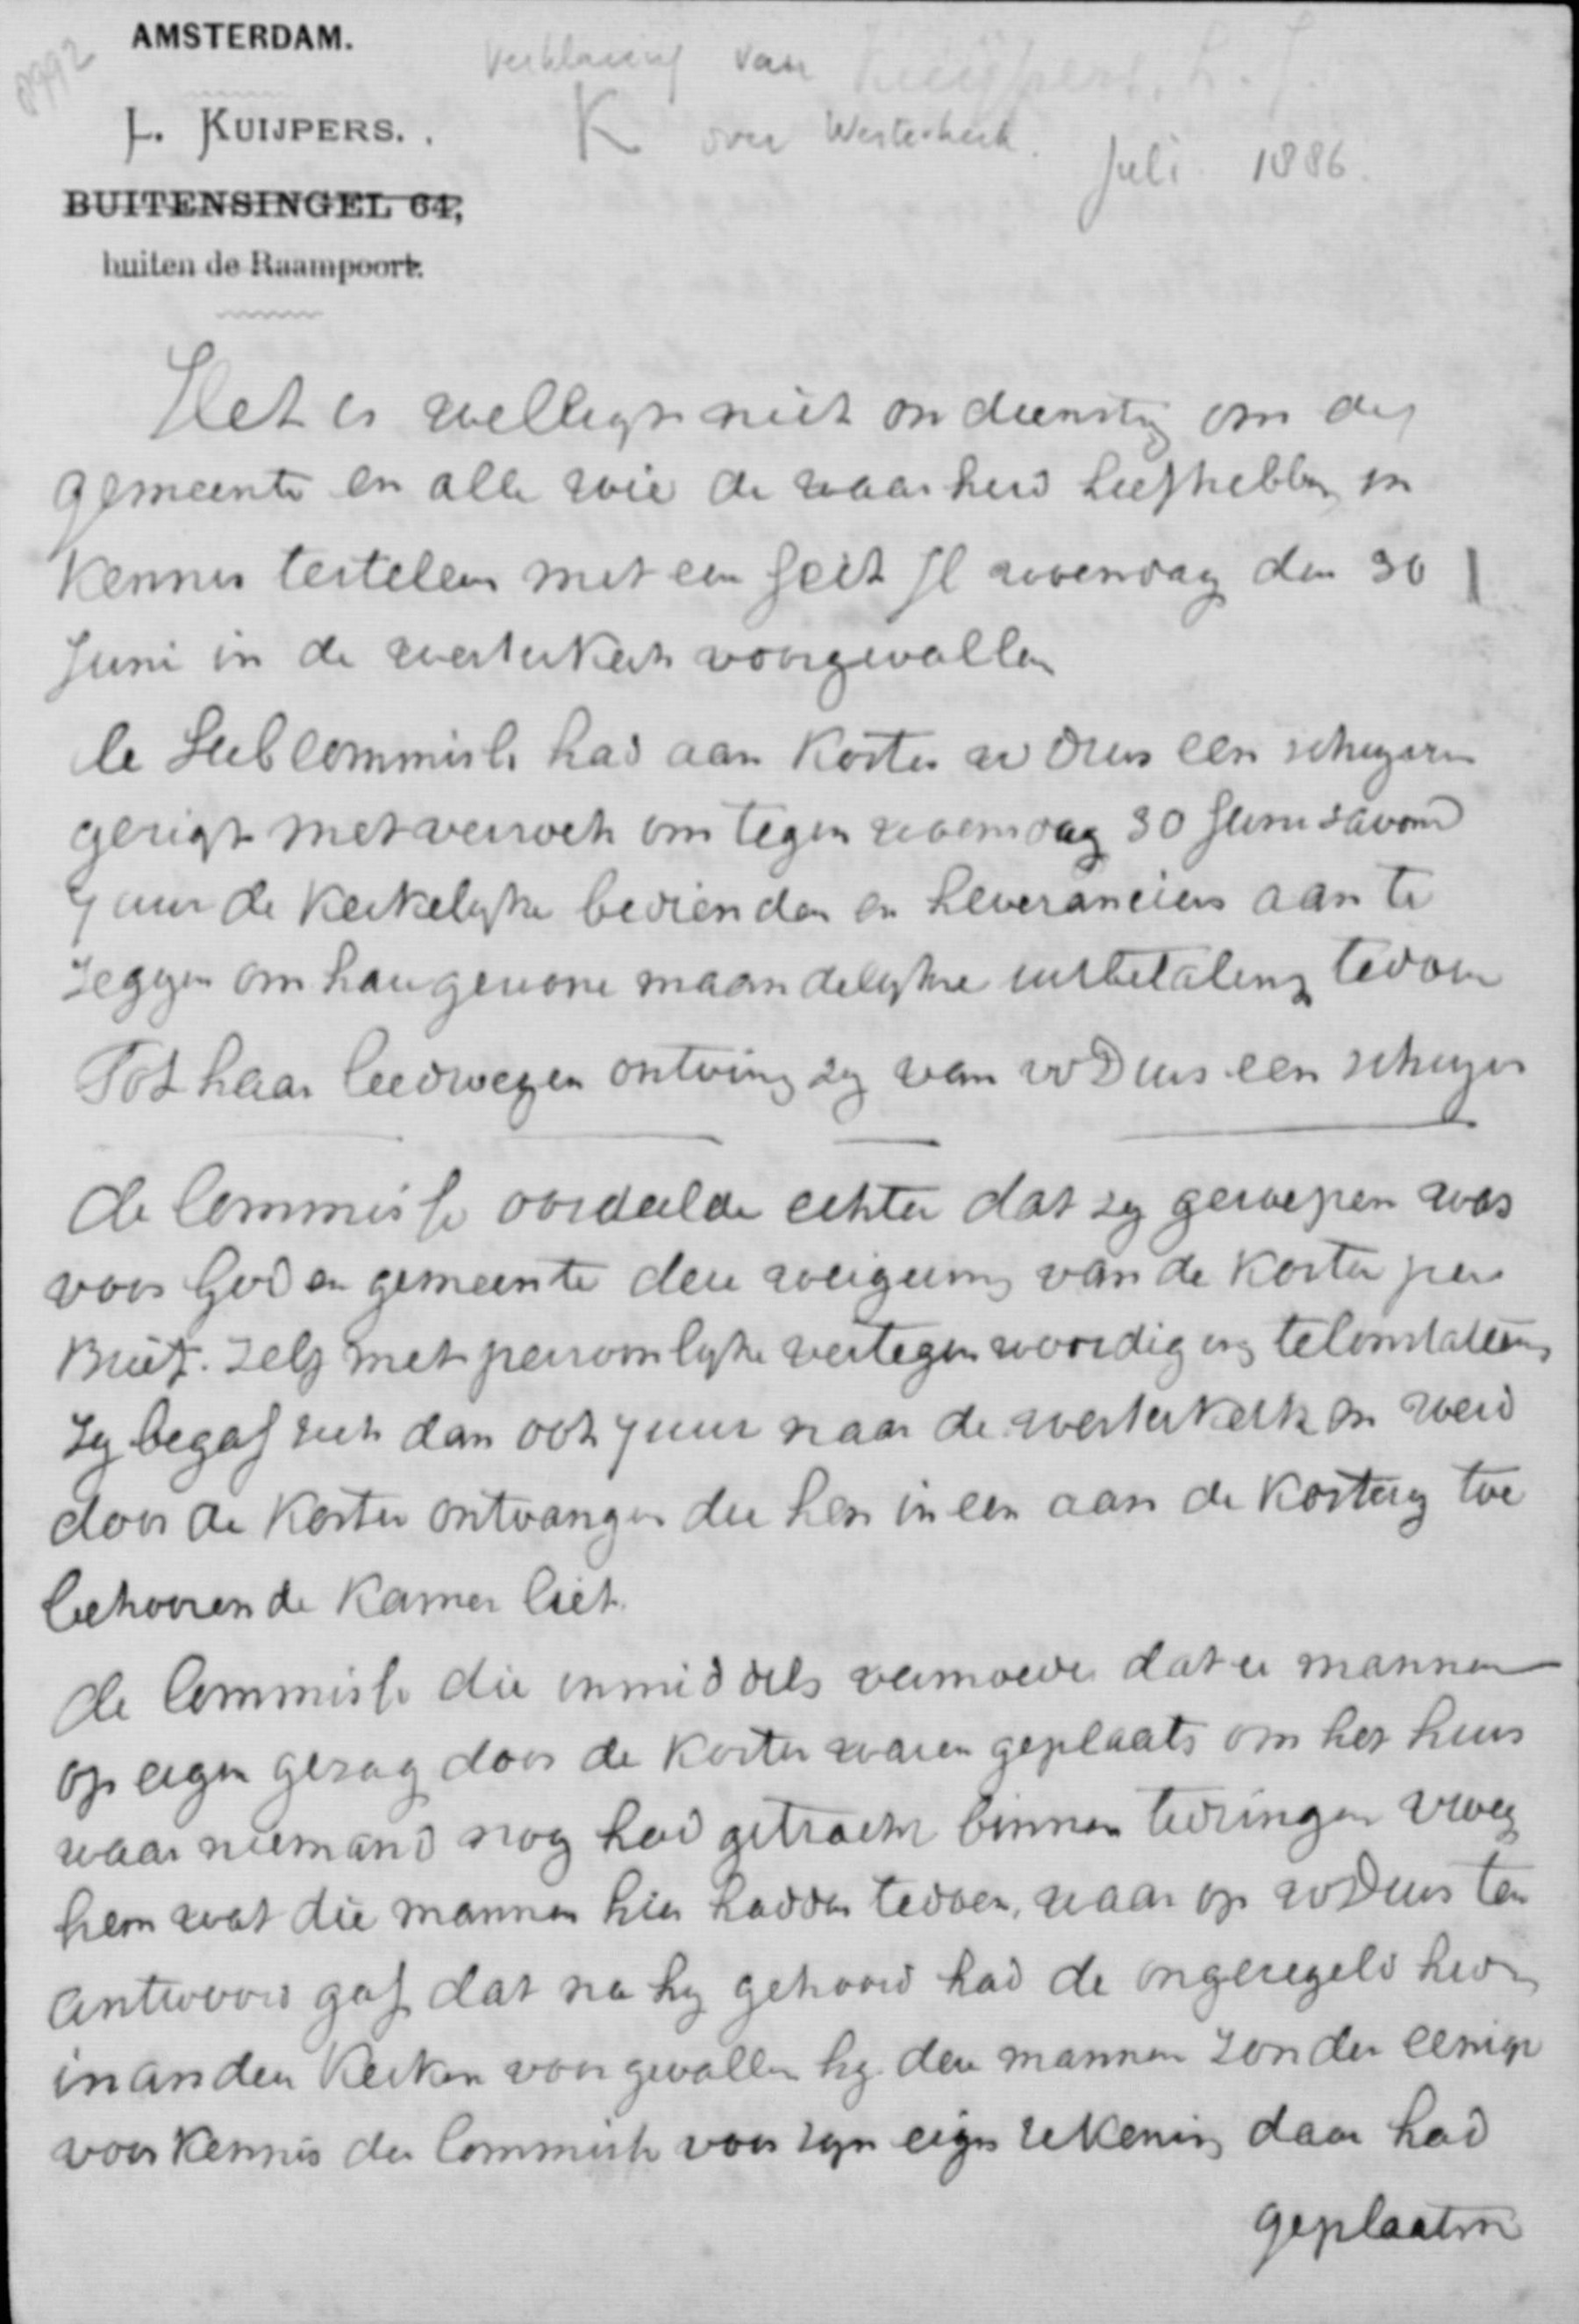 8992
AMSTERDAM.
Verklaring van Kuijpers, L. J.
L. KUIJPERS.
K over Westerkerk.
Juli 1886.
BUITENSINGEL 64,
buiten de Raampoort.
Het is welligt niet ondienstig om de
gemeente en alle wie de waarheid liefhebben in
kennis testelen met een feit jl woensdag den 30
Juni in de westerkerk voorgevallen
de Subcommissie had aan Koster vd Drus een schrijven
gerigt met verzoek om tegen woensdag 30 Juni savond
7 uur de kerkelijke bedienden en Leveranciers aan te
zeggen om hau gewone maandelijkse uitbetaling tedoen
Tot haar leedwezen ontving zij van vd Drus een schrijven
de Commissie oordeelde echter dat zij geroepen was
voor God en gemeente deze weigering van de Koster per
Brief. zelf met persoonlijke vertegenwoordiging teConstateeren
Zij begaf zich dan ook 7 uur naar de westerkerk en werd
door de Koster ontvangen die hen in een aan de Kosterij toe
behoorende Kamer liet.
de Commissie die inmiddels vermoede dat er mannen
op eigen gezag door de Koster waren geplaats om het huis
waar niemand nog had getracht binnen tedringen vroeg
hem wat die mannen hier hadden tedoen, waar op vd Drus ten
antwoord gaf dat na hij gehoord had de ongeregeldheden
in anderen Kerken voorgevallen hij deze mannen zonder eenige
voorkennis der Commissie voor zijn eigen rekening daar had
geplaatst